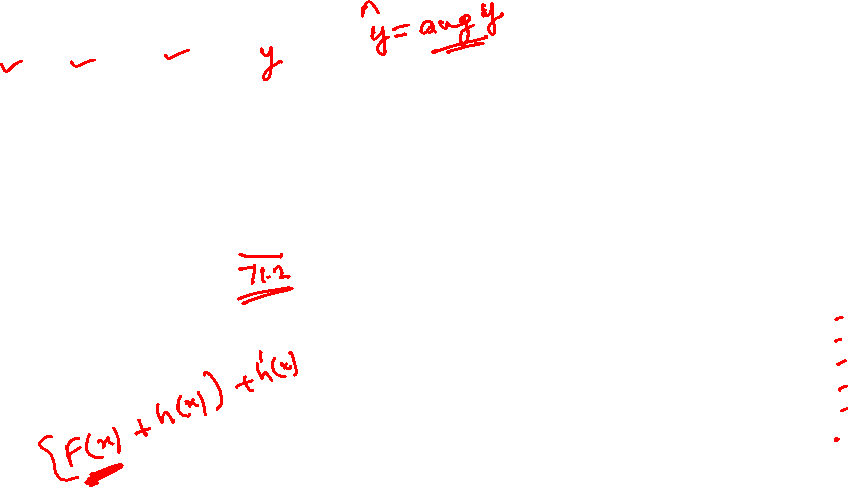 ŷ = avg y
✓ ✓ ✓ y
71.2
{F(x) + h(x)) + h'(x)